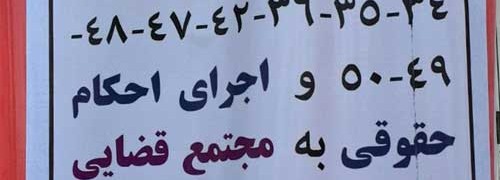 ۳۴-۳۵-۳۶-۴۲-۴۷-۴۸-
۴۹-۵۰ و اجرای احکام
حقوقی به مجتمع قضایی